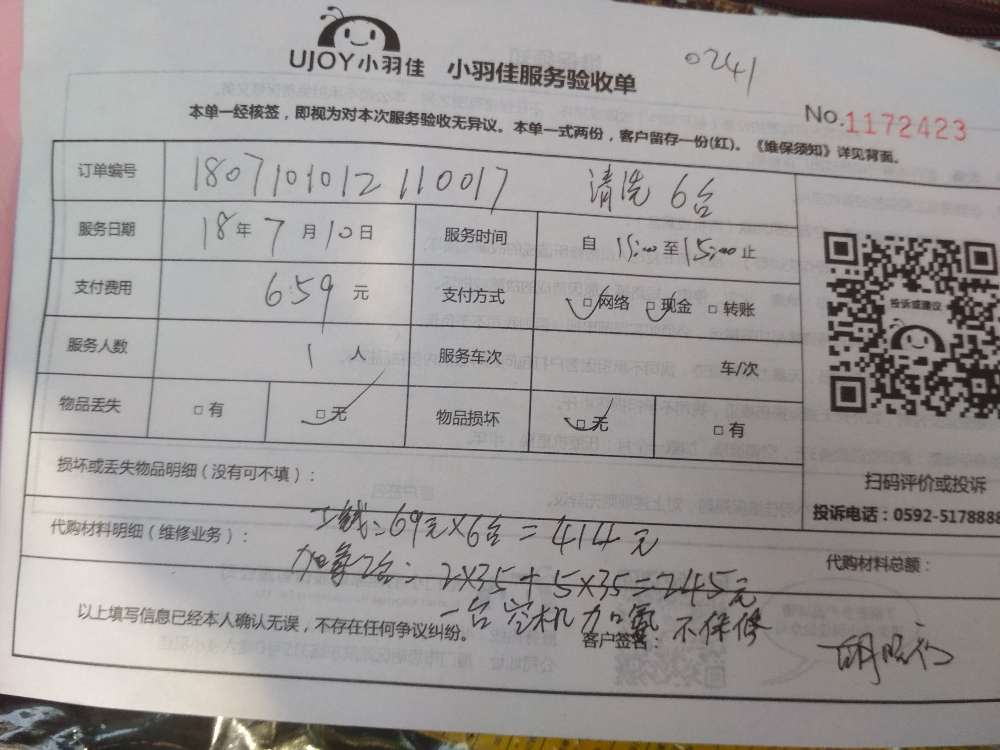 UJOY小羽佳 小羽佳服务验收单
0241
No.1172423
本单一经核签,即视为对本次服务验收无异议。本单一式两份,客户留存一份(红)。《维保须知》详见背面。
订单编号 180710101211 0017 清洗6台
服务日期 18年7月10日 服务时间 自 15:00至15:00止
支付费用 659元 支付方式 □网络 □现金 □转账
服务人数 1人 服务车次 车/次
物品丢失 □有 □无 物品损坏 □无 □有
投诉或建议
扫码评价或投诉
投诉电话:0592-5178888
损坏或丢失物品明细(没有可不填):
69元×6台=414元
代购材料明细(维修业务): 代购材料总额:
加氟2台: 2×35+5×35=245元
一台空机加氟不保修
以上填写信息已经本人确认无误,不存在任何争议纠纷。 客户签名: